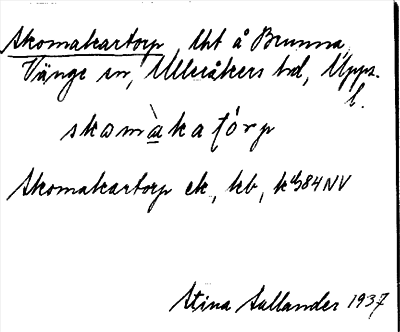 Skomakartorp lht å Brunna,
Vänge sn, Ulleråkers hd, Upps.
l.
skomàkatórp
Skomakartorp ek, kb, k 84 NV
Stina Sallander 1937